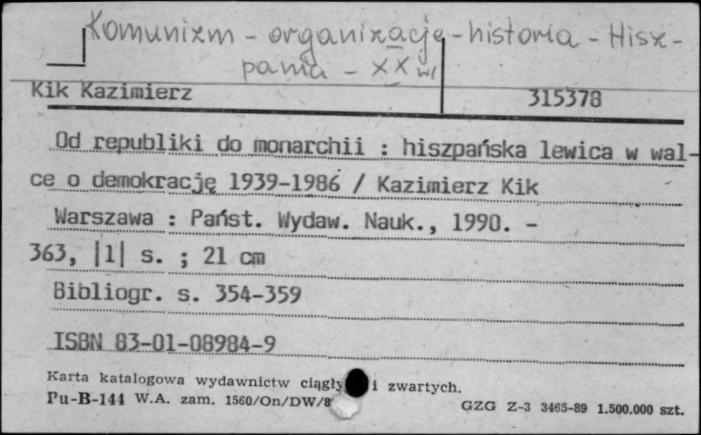 Komunizm - organizacje - historia - Hisz-
pania - XX w.
Kik Kazimierz 315378
Od republiki do monarchii : hiszpańska lewica w wal-
ce o demokrację 1939-1986 / Kazimierz Kik
Warszawa : Państ. Wydaw. Nauk., 1990. -
363, |1| s. ; 21 cm
Bibliogr. s. 354-359
ISBN 83-01-08984-9
Karta katalogowa wydawnictw ciągły i zwartych.
Pu-B-144 W.A. zam. 1560/On/DW/8 GZG Z-3 3465-89 1.500.000 szt.